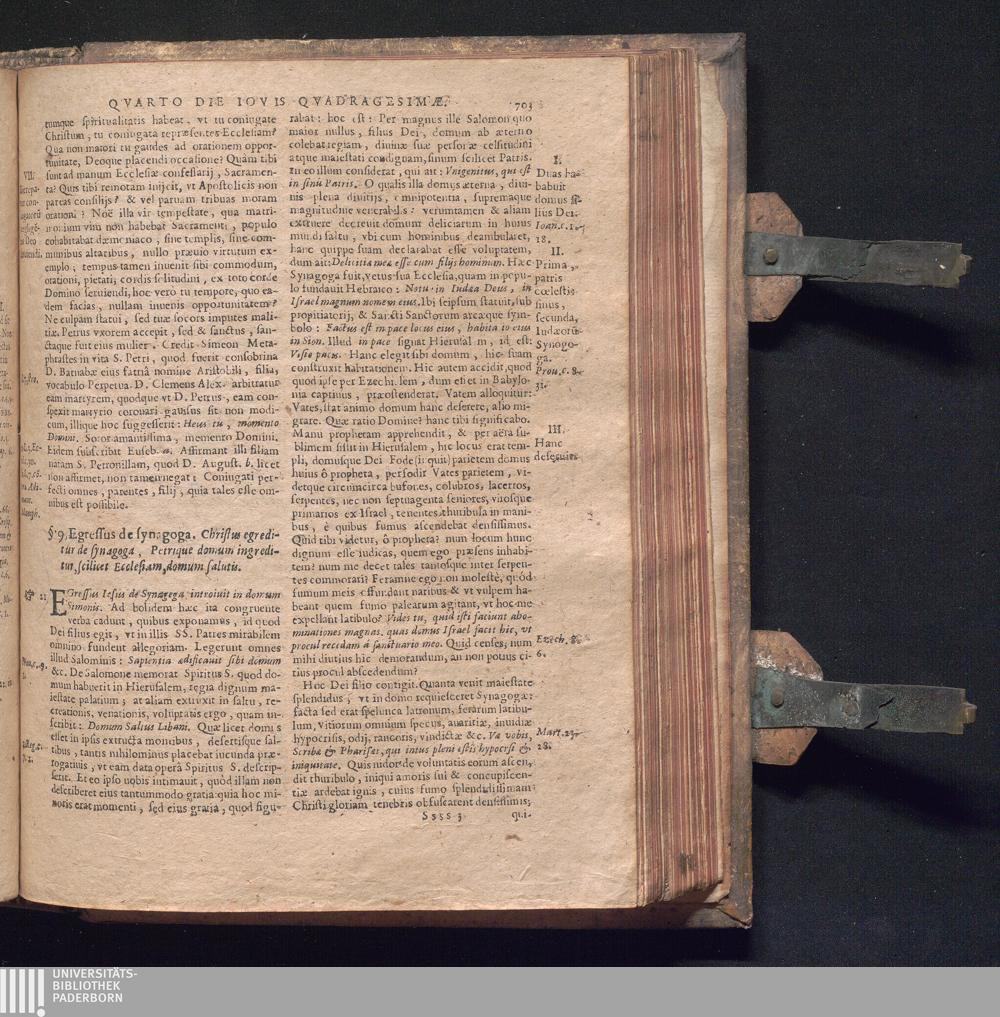 QVARTO DIE IOVIS QVADRAGESIMÆ. 703
tumque spiritualitatis habeat, vt tu coniugate
Christum, tu coniugata repræsentes Ecclesiam?
Qua non maiori tu gaudes ad orationem oppor-
tunitate, Deoque placendi occasione? Quàm tibi
sunt ad manum Ecclesiæ confessarij, Sacramen-
ta? Quis tibi remotam inijcit, vt Apostolicis non
pareas consilijs? & vel paruam tribuas moram
orationi? Noë illa vir tempestate, qua matri-
monium vim non habebat Sacramenti, populo
cohabitabat dæmoniaco, sine templis, sine com-
munibus altaribus, nullo præuio virtutum ex-
emplo; tempus tamen inuenit sibi commodum,
orationi, pietati, cordis solitudini, ex toto corde
Domino seruiendi, hoc verò tu tempore, quo ea-
dem facias, nullam inuenis opportunitatem?
Ne culpam statui, sed tuæ socors imputes mali-
tiæ. Petrus vxorem accepit, sed & sanctus, san-
ctaque fuit eius mulier. Credit Simeon Meta-
phrastes in vita S. Petri, quod fuerit consobrina
D. Barnabæ eius fatrià nomine Aristobili, filia,
vocabulo Perpetua. D. Clemens Alex. arbitratur
eam martyrem, quodque vt D. Petrus, eam con-
spexit martyrio coronari gauisus sit non modi-
cum, illique hoc suggesserit: Heus tu, momento
Domini. Soror amantissima, memento Domini.
Eidem subscribit Euseb. a. Affirmant illi filiam
natam S. Petronillam, quod D. August. b. licet
non affirmet, non tamen negat: Coniugati per-
fecti omnes, parentes, filij, quia tales esse om-
nibus est possibile.
§. 9. Egressus de synagoga. Christus egredi-
tur de synagoga, Petrique domum ingredi-
tur, scilicet Ecclesiam, domum salutis.
21. EGressus Iesus de Synagoga introiuit in domum
Simonis. Ad bolidem hæc ita congruente
verba cadunt, quibus exponamus, id quod
Dei filius egit, vt in illis SS. Patres mirabilem
omnino fundent allegoriam. Legerunt omnes
illud Salominis: Sapientia ædificauit sibi domum
&c. De Salomone memorat Spiritus S. quod do-
mum habuerit in Hierusalem, regia dignum ma-
iestate palatium; at aliam extruxit in saltu, re-
creationis, venationis, voluptatis ergo, quam in-
scribit: Domum Saltus Libani. Quæ licet domus
esset in ipsis extructa montibus, desertisque sal-
tibus, tantis nihilominus placebat iucunda præ-
rogatiuis, vt eam data operâ Spiritus S. descrip-
serit. Et eo ipso nobis intimauit, quòd illam non
describeret eius tantummodo gratia quia hoc mi-
noris erat momenti, sed eius gratia, quod figu-
rabat: hoc est: Per magnus ille Salomon quo
maior nullus, filius Dei, domum ab æterno
colebat regiam, diuinæ suæ personæ celsitudini
atque maiestati condignam, sinum scilicet Patris.
In eo illum considerat, qui ait: Vnigenitus, qui est
in sinu Patris. O qualis illa domus æterna, diui-
nis plena diuitijs, omnipotentia, supremaque
magnitudine venerabilis: verumtamen & aliam
extruere decreuit domum deliciarum in huius
mundi saltu, vbi cum hominibus deambularet,
hanc quippe suam declarabat esse voluptatem,
dum ait: Delicitiæ meæ esse cum filijs hominum. Hæc
Synagoga fuit, vetus sua Ecclesia, quam in popu-
lo fundauit Hebraico: Notus in Iudæa Deus, in
Israel magnum nomen eius. Ibi seipsum statuit, sub
propitiatorij, & Sancti Sanctorum arcæque sym-
bolo: Factus est in pace locus eius, habitatio eius
in Sion. Illud in pace signat Hierusalem, id est:
Visio pacis. Hanc elegit sibi domum, hic suam
construxit habitationem. Hic autem accidit, quod
quod ipse per Ezechielem, dum esset in Babylo-
nia captiuus, præostenderat. Vatem alloquitur:
Vates, stat animo domum hanc deserere, alio mi-
grare. Quæ ratio Domine? hanc tibi significabo.
Manu prophetam apprehendit, & per aëra su-
blimem sistit in Hierusalem, hic locus erat tem-
pli, domusque Dei Fode (inquit) parietem domus
huius ô propheta, perfodit Vates parietem, vi-
detque circumcirca bufones, colubros, lacertos,
serpentes, nec non septuagenta seniores, virosque
primarios ex Israel, tenentes thuribula in mani-
bus, è quibus fumus ascendebat densissimus.
Quid tibi videtur, ô propheta? num locum hunc
dignum esse iudicas, quem ego præsens inhabi-
tem? num me decet tales tantosque inter serpen-
tes commorari? Feramne ego non molestè, quòd
fumum meis effundant naribus & vt vulpem ha-
beant quem fumo palearum agitant, vt hoc me
expellant latibulo? Vides tu, quid isti faciunt abo-
minationes magnas, quas domus Israel facit hic, vt
procul recedam à sanctuario meo. Quid censes, num
mihi diutius hic demorandum, an non potius ci-
tius procul abscedendum?
Hoc Dei filio contigit. Quanta venit maiestate
splendidus, vt in domo requiesceret Synagogæ:
facta sed erat spelunca latronum, ferarum latibu-
lum, Vitiorum omnium specus, auaritiæ, inuidiæ
hypocrisis, odij, rancoris, vindictæ &c. Væ vobis,
Scribæ & Pharisæi, qui intus pleni estis hypocrisi &
iniquitate. Quis nidor de voluntatis eorum ascen-
dit thuribulo, iniqui amoris sui & concupiscen-
tiæ ardebat ignis, cuius fumo splendidissimam
Christi gloriam tenebris obfuscarent densissimis;
Ssss 3 qui-
VII.
I.
Duas ha-
babuit
domus fi-
lius Dei.
Ioan. c. 1.
18.
II.
Prima,
patris
cœlestis
sinus,
secunda,
Iudæorū
Synogo-
ga.
Prou. c. 8.
31.
III.
Hanc
deseruit.
Ezech. 8.
6.
Matt. 23.
28.
UNIVERSITÄTS-
BIBLIOTHEK
PADERBORN